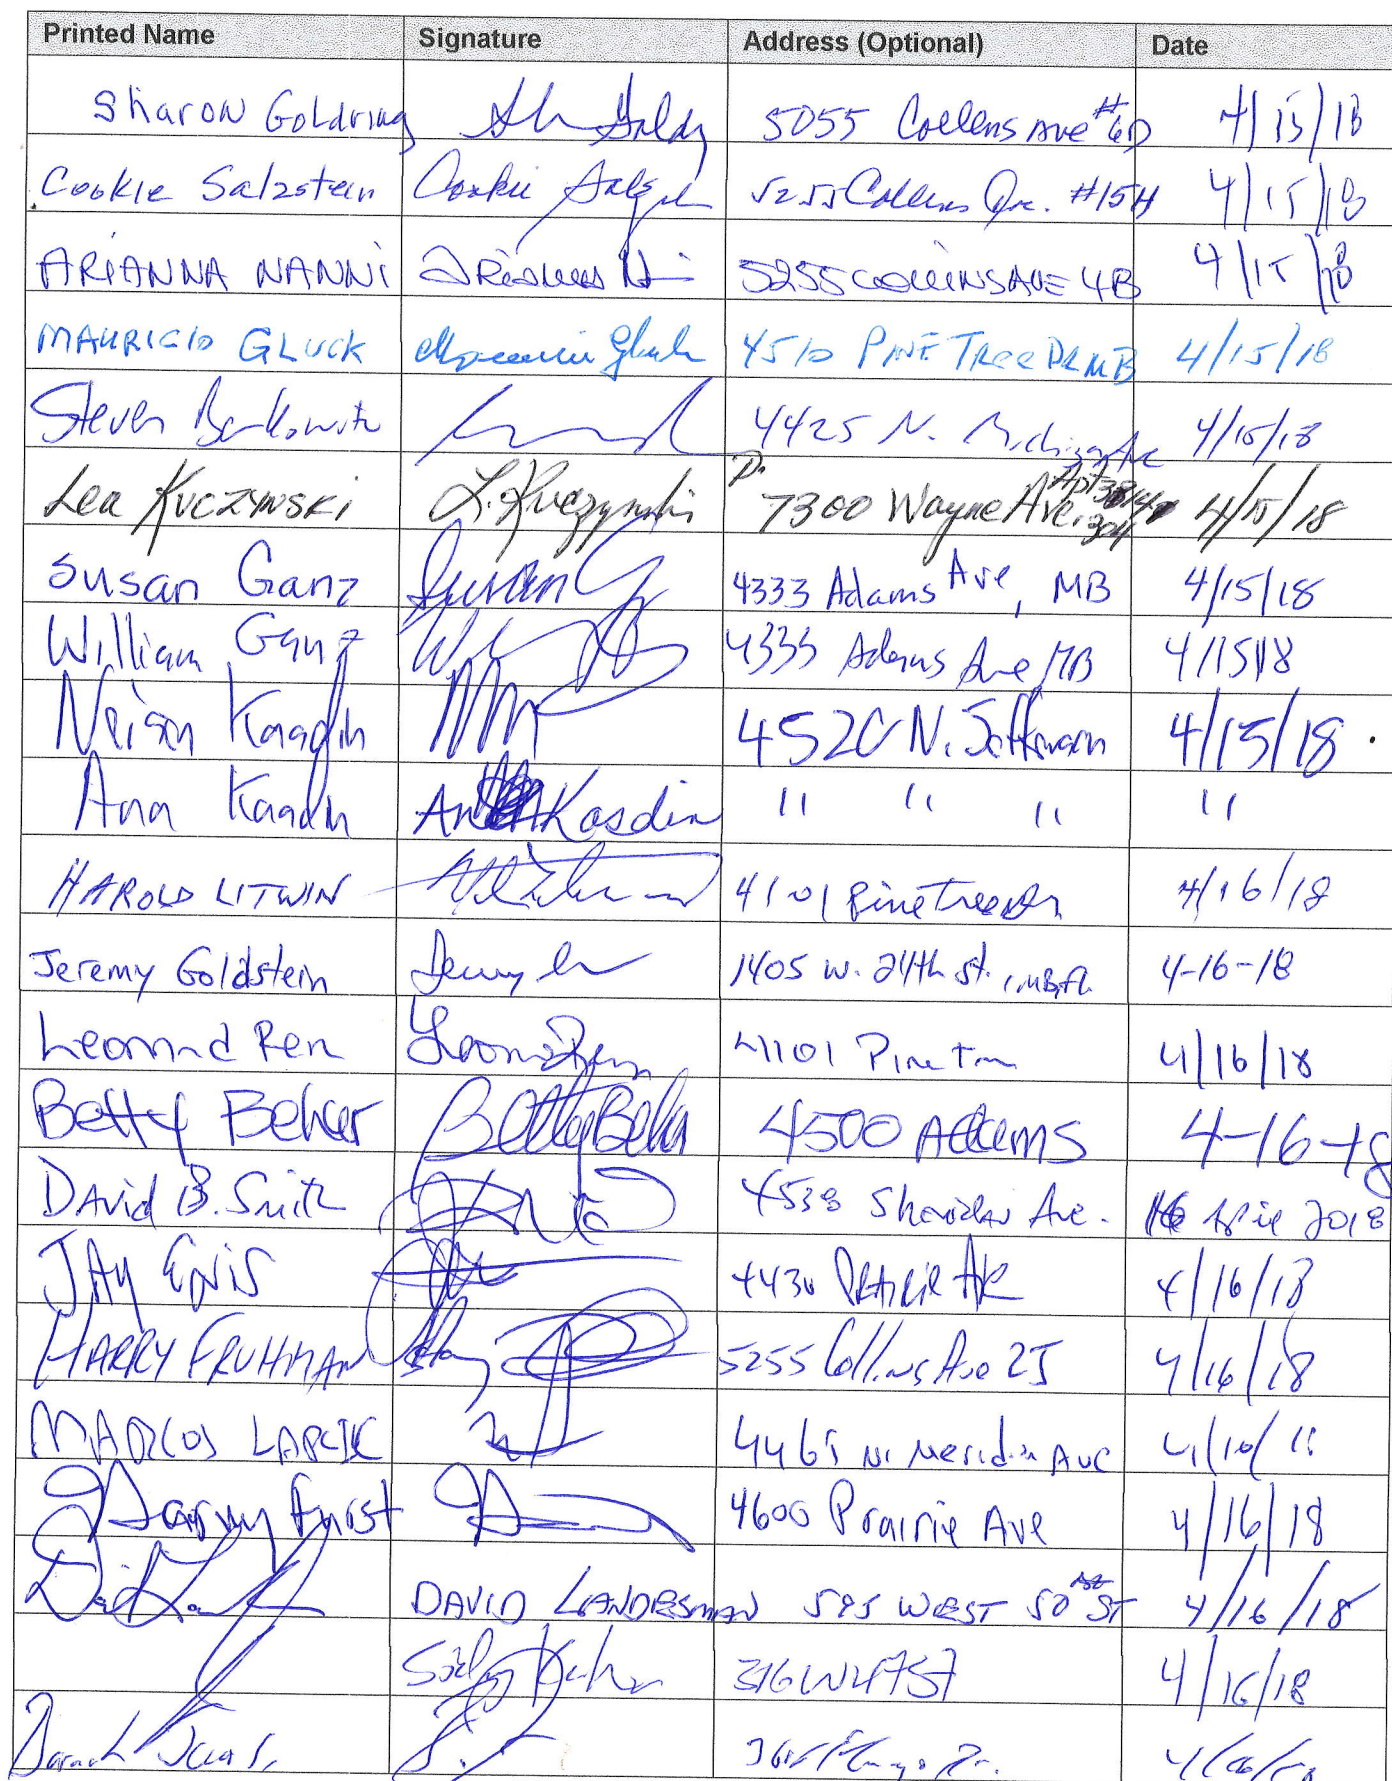 Printed Name Signature Address (Optional) Date
Sharon Goldring 5055 Collens Ave #6D 4/15/18
Cookie Salzstein Cookie 5255 Collens Ave. #15H 4/15/18
ARIANNA NANNI 5255 COLLINS AVE 4B 4/15/18
MAURICIO GLUCK 4510 PINE TREE DR MB 4/15/18
Steven Berkowitz 4425 N. Michigan Ave 4/15/18
Lea KUCZYNSKI L. Kuczynski 7300 Wayne Ave. Apt 304 4/15/18
Susan Ganz Susan G 4333 Adams Ave, MB 4/15/18
William Ganz 4333 Adams Ave MB 4/15/18
Neisen Kasdin 4520 N. Jefferson 4/15/18
Ana Kasdin Kasdin " " " "
HAROLD LITWIN 4101 Pinetree Dr 4/16/18
Jeremy Goldstein 1405 W. 24th St., MB, FL 4-16-18
Leonard Ren 4101 Pine 4/16/18
Betty Behar Betty Behar 4500 Adams 4-16-18
David B. Smith 4538 Sheridan Ave. 16 2018
JAY ENIS 4430 Prairie Ave 4/16/18
HARRY FRUHMAN Harry 5255 Collins Ave 2J 4/16/18
MARCOS LAPCIC N. Meridian AVE
Harvey Furst 4600 Prairie Ave 4/16/18
DAVID LANDESMAN 595 WEST 50 ST 4/16/18
316 W 47 St 4/16/18